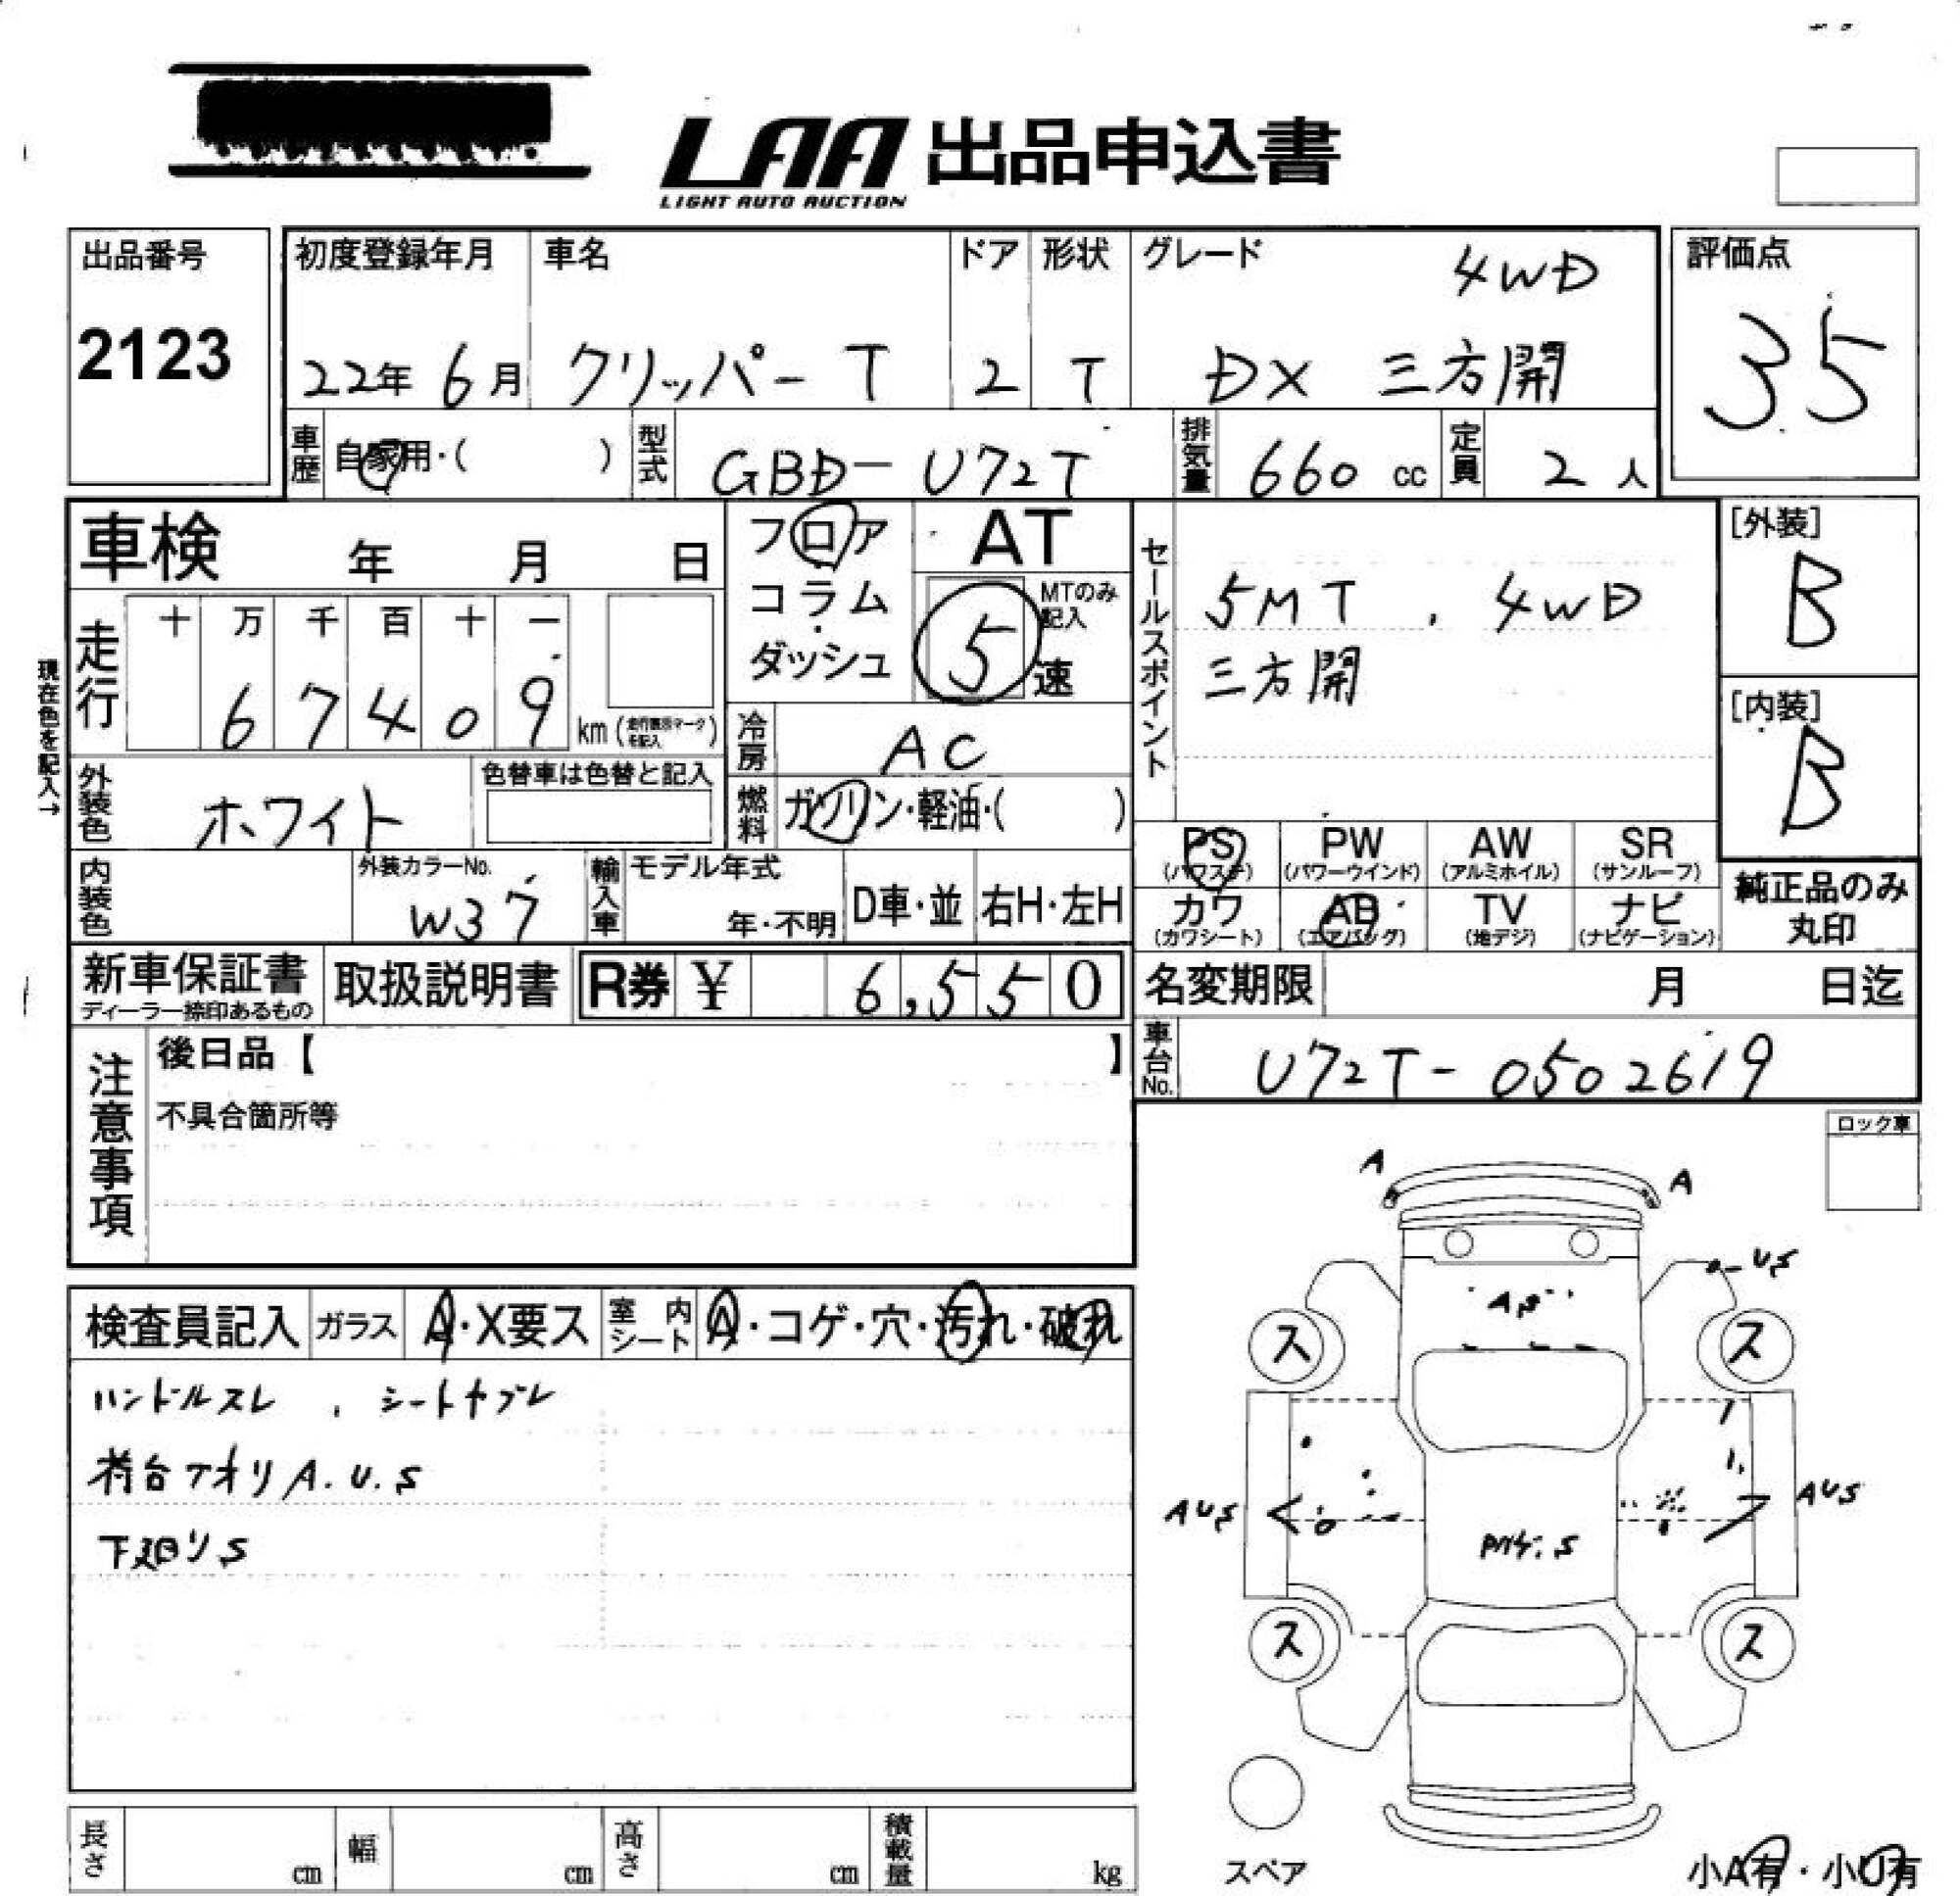 LAA 出品申込書
LIGHT AUTO AUCTION
出品番号
2123
初度登録年月 車名 ドア 形状 グレード 4WD
22年 6月 クリッパーT 2 T DX 三方開
評価点
3.5
車歴 自家用・( ) 型式 GBD-U72T 排気量 660 cc 定員 2 人
車検 年 月 日
フロア
コラム
ダッシュ
AT
MTのみ記入
5 速
セールスポイント
5MT . 4WD
三方開
[外装]
B
[内装]
B
現在色を記入→
走行 十 万 千 百 十 一
6 7 4 0 9 km
冷房 AC
外装色 ホワイト 色替車は色替と記入
燃料 ガソリン・軽油・( )
PS PW AW SR
(パワステ) (パワーウインド) (アルミホイル) (サンルーフ)
カワ AB TV ナビ
(カワシート) (エアバッグ) (地デジ) (ナビゲーション)
純正品のみ
丸印
内装色 外装カラーNo. W37 輸入車 モデル年式 年・不明 D車・並 右H・左H
新車保証書 取扱説明書 R券 ¥ 6,550
ディーラー捺印あるもの
名変期限 月 日迄
車台No. U72T-0502619
注意事項
後日品【 】
不具合箇所等
ロック車
検査員記入 ガラス A・X要ス 室内シート A・コゲ・穴・汚れ・破れ
ハンドルスレ , シートヤブレ
荷台アオリA.U.S
下廻りS
A A
US
A,S
ス ス
AUS AUS
S
ス ス
スペア
小A有・小U有
長さ cm 幅 cm 高さ cm 積載量 kg